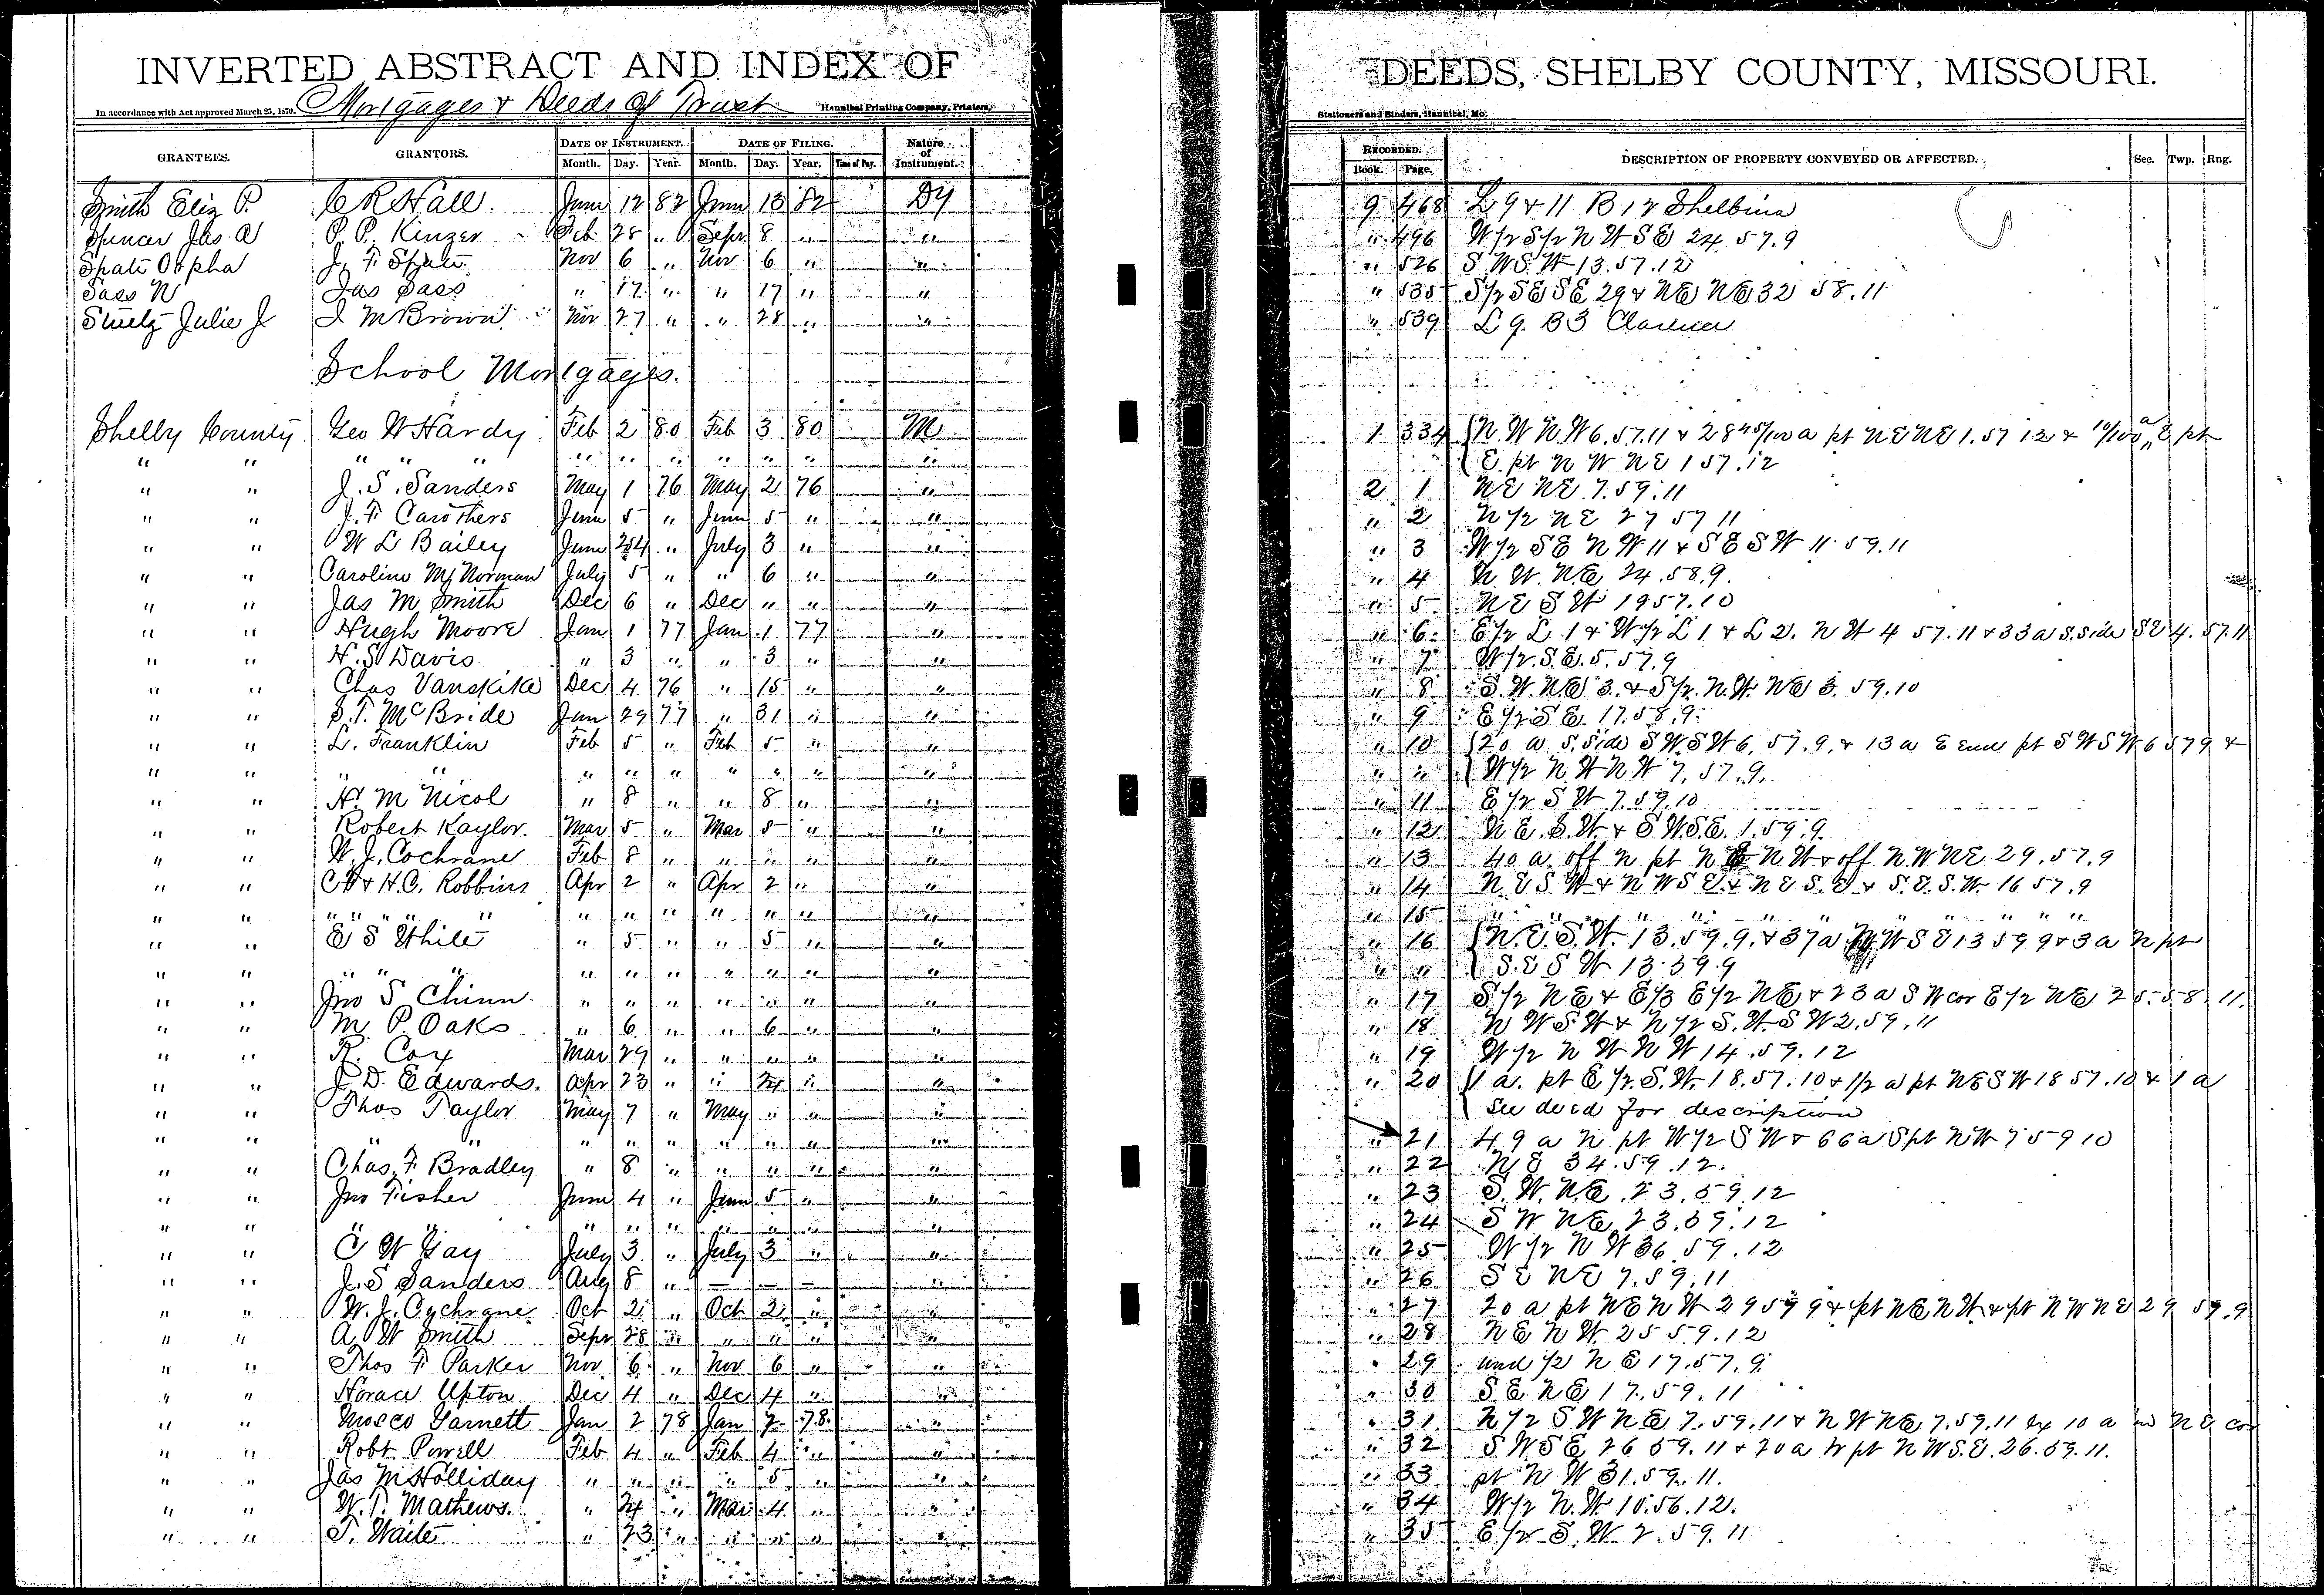 INVERTED ABSTRACT AND INDEX OF DEEDS, SHELBY COUNTY, MISSOURI.
In accordance with Act approved March 25, 1870. Mortgages & Deeds of Trust Hannibal Printing Company, Printers, Stationers and Binders, Hannibal, Mo.
GRANTEES. GRANTORS. DATE OF INSTRUMENT. DATE OF FILING. Nature of Instrument. RECORDED. DESCRIPTION OF PROPERTY CONVEYED OR AFFECTED. Sec. Twp. Rng.
Month. Day. Year. Month. Day. Year. Book. Page.
Smith Eliz P. C R Hall June 12 82 June 13 82 9 468 L 9 & 11 B 12 Shelbina
Spencer Jas A P. P. Kinzer Feb 28 " Sepr 8 " " " 496 W 1/2 S 1/2 N W S E 24 57.9
Spate Orpha J. F. Spate Nov 6 " Nov 6 " " " 526 S W S W 13.57.12
Sass N Jas Sass " 17 " " 17 " " " 535 S 1/2 S E S E 29 & N E N E 32 58.11
Julie J. I M Brown Nov 27 " " 28 " " " 539 L 9. B 3 Clarence
School Mortgages.
Shelby County Geo W Hardy Feb 2 80 Feb 3 80 M 1 334 N. W N. W 6.57.11 & 28 45/100 a pt N E N E 1.57 12 & 10/100 a E pt
" " " " " " " " " " " " E. pt N W N E 1 57.12
" " J. S. Sanders May 1 76 May 2 76 " 2 1 N E N E 7.59.11
" " J. F. Carothers June 5 " June 5 " " " 2 N 1/2 N E 27 57 11
" " W L Bailey June 24 " July 3 " " " 3 W 1/2 S E N W 11 & S E S W 11.59.11
" " Caroline M Norman July 5 " " 6 " " " 4 N. W. N. E 24.58.9.
" " Jas M Smith Dec 6 " Dec " " " " 5 N E S W 19 57.10
" " Hugh Moore Jan 1 77 Jan 1 77 " " 6 E 1/2 L 1 & W 1/2 L 1 & L 2. N W 4 57.11 & 33 a S. side S E 4.57.11
" " H. S Davis " 3 " " 3 " " " 7 W 1/2. S. E. 5.57.9
" " Chas Vanskike Dec 4 76 " 15 " " " 8 S. W. N E 3. & S 1/2. N. W. N E 3. 59.10
" " S. T. McBride Jan 29 77 " 31 " " " 9 E 1/2 S E. 17.58.9.
" " L. Franklin Feb 5 " Feb 5 " " " 10 20 a S. side S W. S W 6. 57.9. & 13 a E end pt S W S W 6 57 9 &
" " " " " " " " " " " " " W 1/2 N W N W 7. 57.9.
" " H. M Nicol " 8 " " 8 " " " 11 E 1/2 S W 7.59.10
" " Robert Kaylor. Mar 5 " Mar 5 " " " 12 N E. S. W & S W. S. E. 1.59.9.
" " W. J. Cochrane Feb 8 " " " " " " 13 40 a off N pt N E N W & off N W N E 29.57.9
" " & H. C. Robbins Apr 2 " Apr 2 " " " 14 N E S. W & N W S E & N E S. E & S. E. S. W. 16 57.9
" " " " " " " " " " " " " 15 " " " " " " " " " "
" " E S White " 5 " " 5 " " " 16 N. E. S. W. 13.59.9. & 37 a N W S E 13 59 9 & 3 a N pt
" " " " " " " " " " " " " " S. E S W 13.59.9
" " Jno S Chinn " " " " " " " " 17 S 1/2 N E & E 1/3 E 1/2 N E & 23 a S W cor E 1/2 N E 25.58.11.
" " M. P. Oaks " 6 " " 6 " " " 18 N W S. W & N 1/2 S. W S W 2.59.11
" " R. Cox Mar 29 " " " " " " 19 W 1/2 N W N W 14.59.12
" " J. D. Edwards. Apr 23 " " 24 " " " 20 1 a. pt E 1/2 S. W. 18.57.10 & 1/2 a pt N E S W 18 57.10 & 1 a
" " Thos Taylor May 7 " May " " " See deed for description
" " " " " " " " " " " " 21 49 a N pt W 1/2 S W & 66 a S pt N W 7 59 10
" " Chas. F. Bradley " 8 " " " " " " 22 N E 34.59.12.
" " Jno Fisher June 4 " June 5 " " " 23 S. W. N. E. 23.59.12
" " " " " " " " " " " 24 S W N E 23.59.12
" " C W Gay July 3 " July 3 " " " 25 W 1/2 N W 36 59.12
" " J. S Sanders Aug 8 " — — — " " 26 S E N E 7.59.11
" " W. J. Cochrane Oct 2 " Oct 2 " " " 27 20 a pt N E N W 29 57 9 & pt N E N W. & pt N W N E 29 57.9
" " A W Smith Sepr 28 " " " " " " 28 N E N W 25 59.12
" " Thos F. Parker Nov 6 " Nov 6 " " " 29 und 1/2 N E 17.57.9.
" " Horace Upton Dec 4 " Dec 4 " " " 30 S. E N E 17.59.11
" " Mosco Garnett Jan 2 78 Jan 7 78 " " 31 N 1/2 S W N E 7.59.11 & N W N E 7.59.11 ex 10 a in N E cor
" " Robt Powell Feb 4 " Feb 4 " " " 32 S W S E 26 59.11 & 20 a N pt N W S. E. 26.59.11.
" " Jas M Holliday " " " " 5 " " " 33 pt N W 31.59.11.
" " W. T. Mathews. " 24 " Mar 4 " " " 34 W 1/2 N. W 10.56.12.
" " T. Waite " 23 " " " " " " 35 E 1/2 S. W 2.59.11